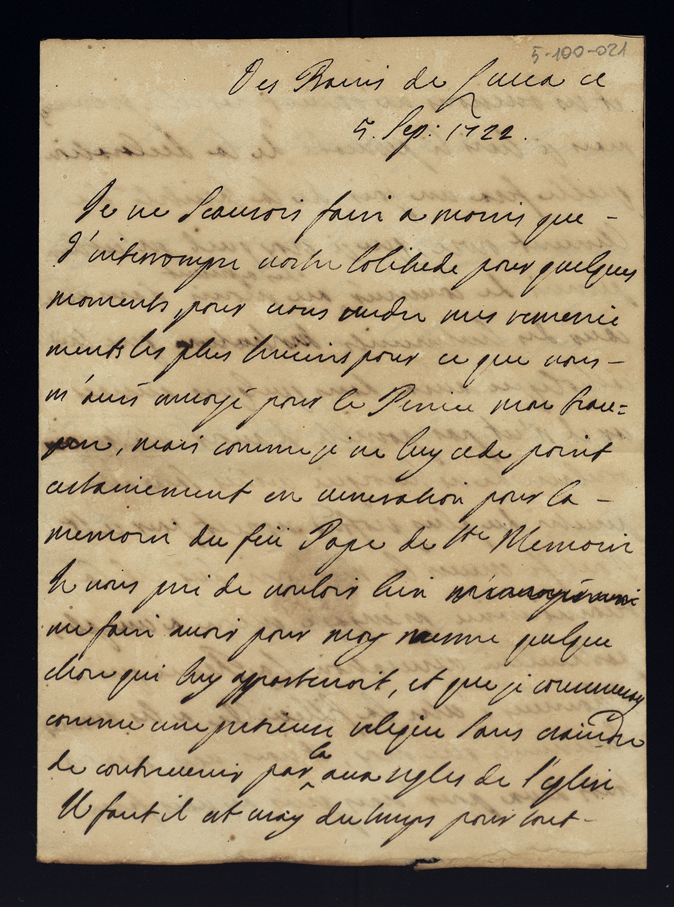 5-100-021
Des Bains de Lucca ce
5. Sep: 1722.
Je ne scaurois faire a moins que -
d'interrompre vostre solitude pour quelques
moments, pour vous rendre mes remercie
ments les plus humains pour ce que vous -
m'avés envoyé pour le Prince mon beau=
pere, mais comme je ne luy cede point
certainement en veneration pour la -
memoire du feü Pape de Ste Memoire
Je vous prie de vouloir bien
me faire avoir pour moy mesme quelque
chose qui luy appartenoit, et que je conserveray
comme une pretieuse relique sans craindre
de contrevenir par la aux regles de l'eglise
Il faut il est vray du temps pour tout -